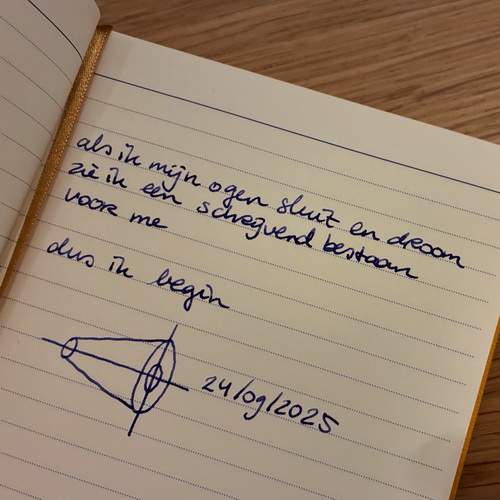 als ik mijn ogen sluit en droom
zie ik een schrijvend bestaan
voor me
dus ik begin
24/09/2025